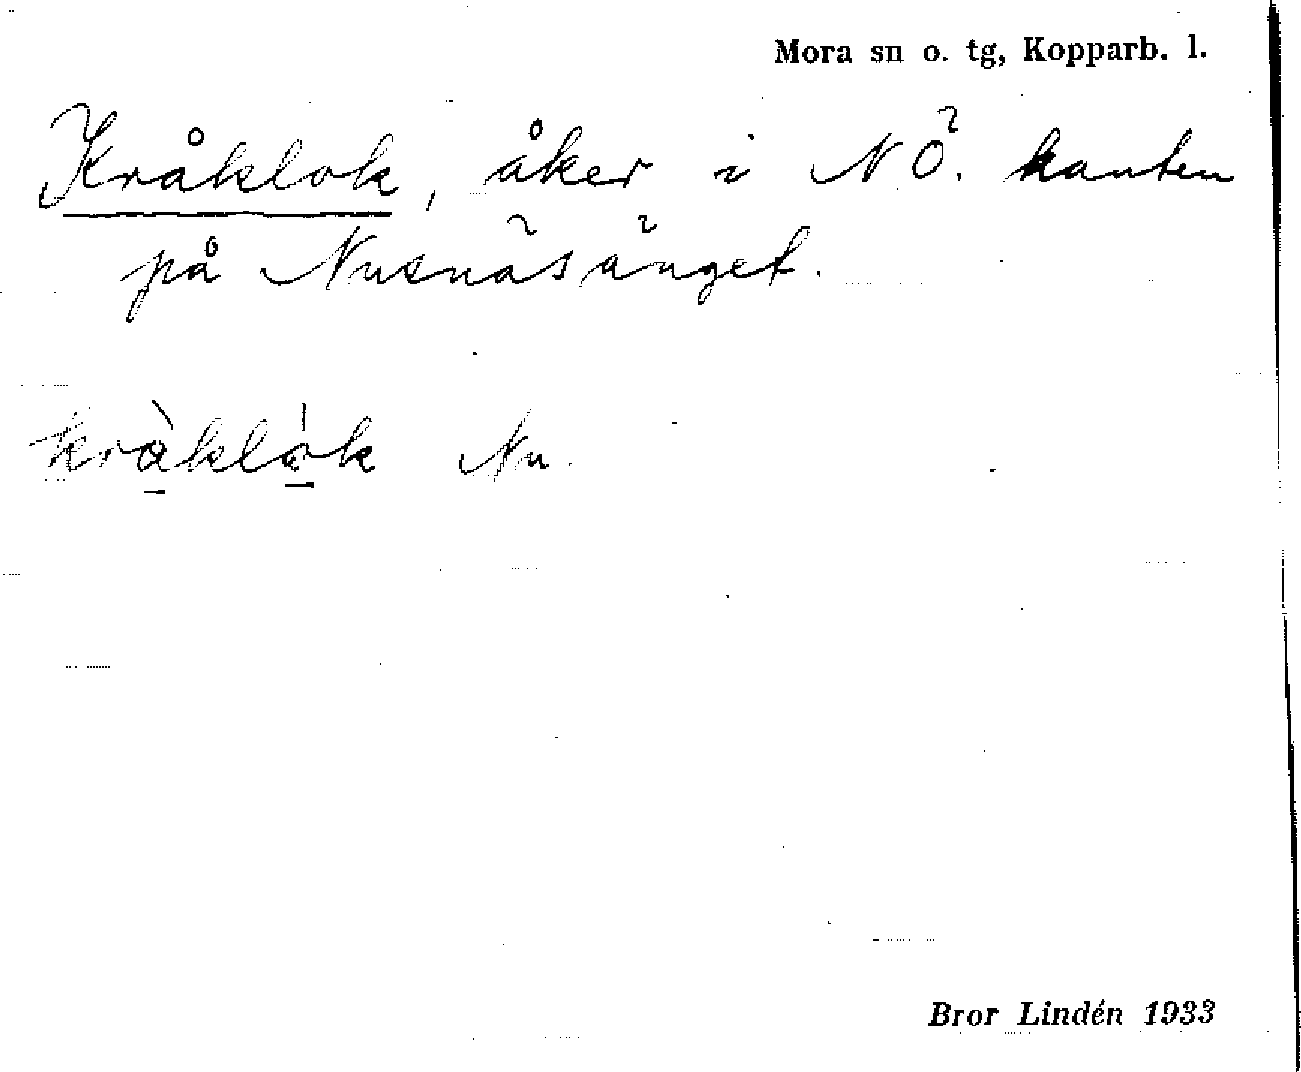 Mora sn o. tg, Kopparb. l.
Kråklok, åker i NÖ. kanten
på Nusnäsänget.
kràklók Nu.
Bror Lindén 1933